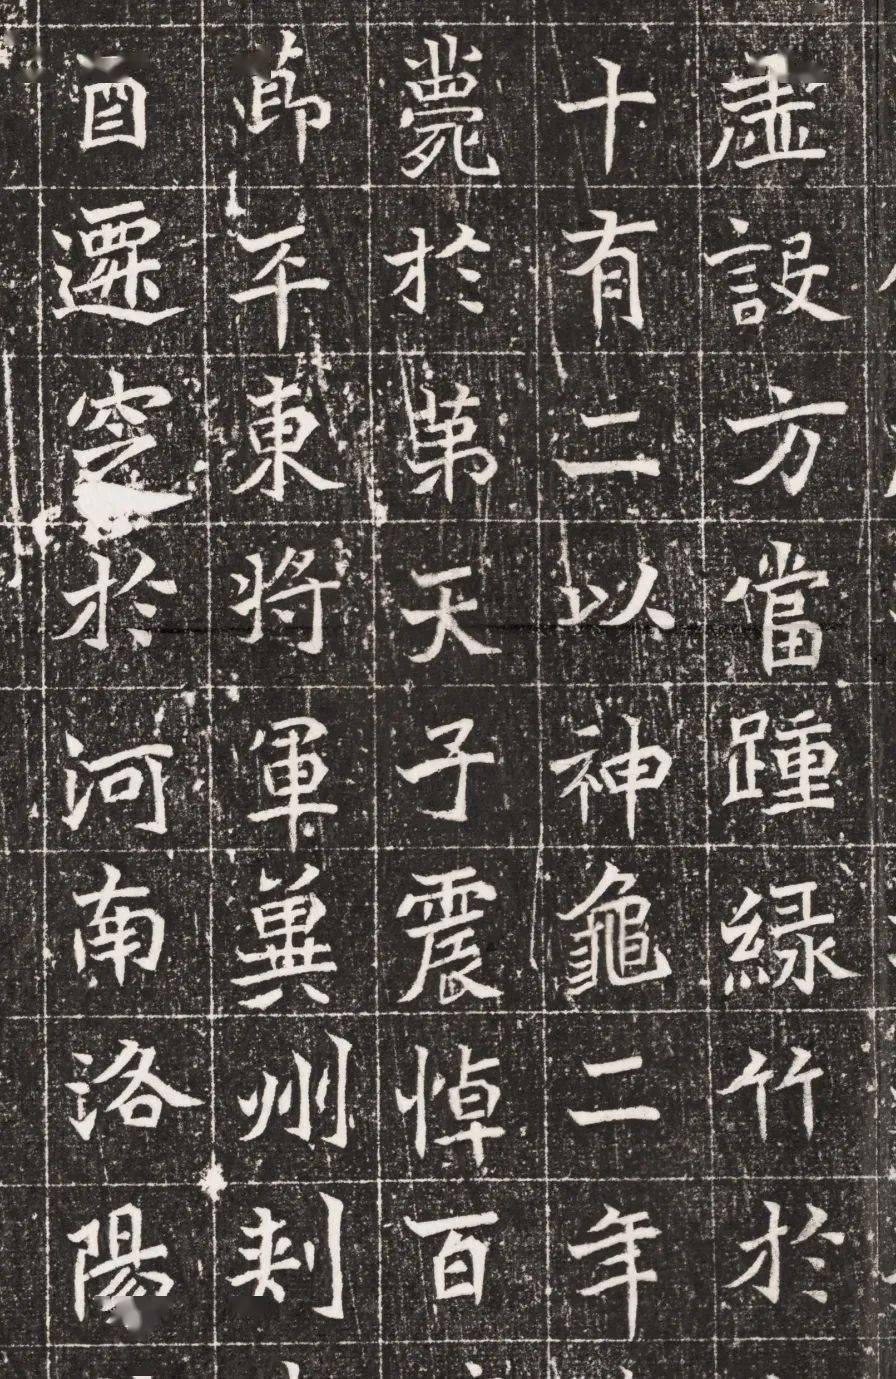 虛設方當踵緑竹於
十有二以神龜二年
薨於苐天子震悼百
莭平東將軍冀州刺
酉遷窆於河南洛陽